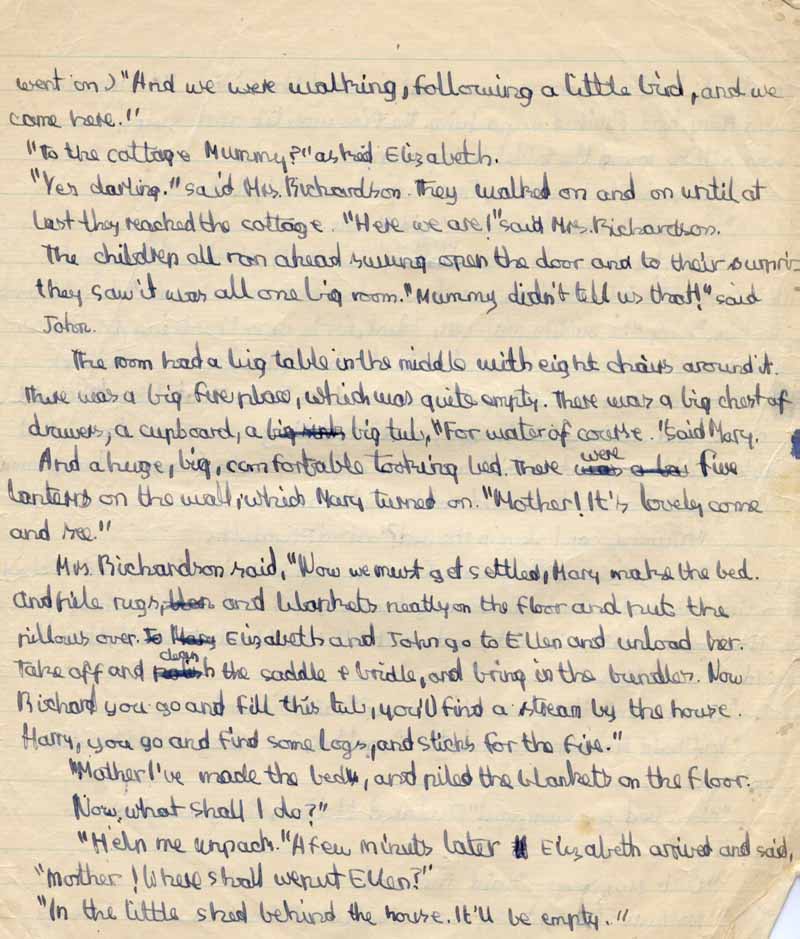 went on) "And we were walking, following a little bird, and we
came here."
"To the cottage Mummy?" asked Elizabeth.
"Yes darling." said Mrs. Richardson. They walked on and on until at
last they reached the cottage. "Here we are!" said Mrs. Richardson.
The children all ran ahead swung open the door and to their surpri-
they saw it was all one big room. "Mummy didn't tell us that!" said
John.
The room had a big table in the middle with eight chairs around it.
There was a big fire place, which was quite empty. There was a big chest of
drawers, a cupboard, a big sink big tub, "For water of course." said Mary.
And a huge, big, comfortable looking bed. There were was a la five
lanterns on the wall, which Mary turned on. "Mother! It's lovely come
and see."
Mrs. Richardson said, "Now we must get settled, Mary make the bed.
and pile rugs, then and blankets neatly on the floor and puts the
pillows over. To Mary Elizabeth and John go to Ellen and unload her.
Take off and clean polish the saddle & bridle, and bring in the bundles. Now
Richard you go and fill this tub, you'll find a stream by the house.
Harry, you go and find some logs, and sticks for the fire."
"Mother I've made the bed, and piled the blankets on the floor.
Now, what shall I do?"
"Help me unpack." A few minuts later Elizabeth arrived and said,
"Mother! Where shall we put Ellen?"
"In the little shed behind the house. It'll be empty."